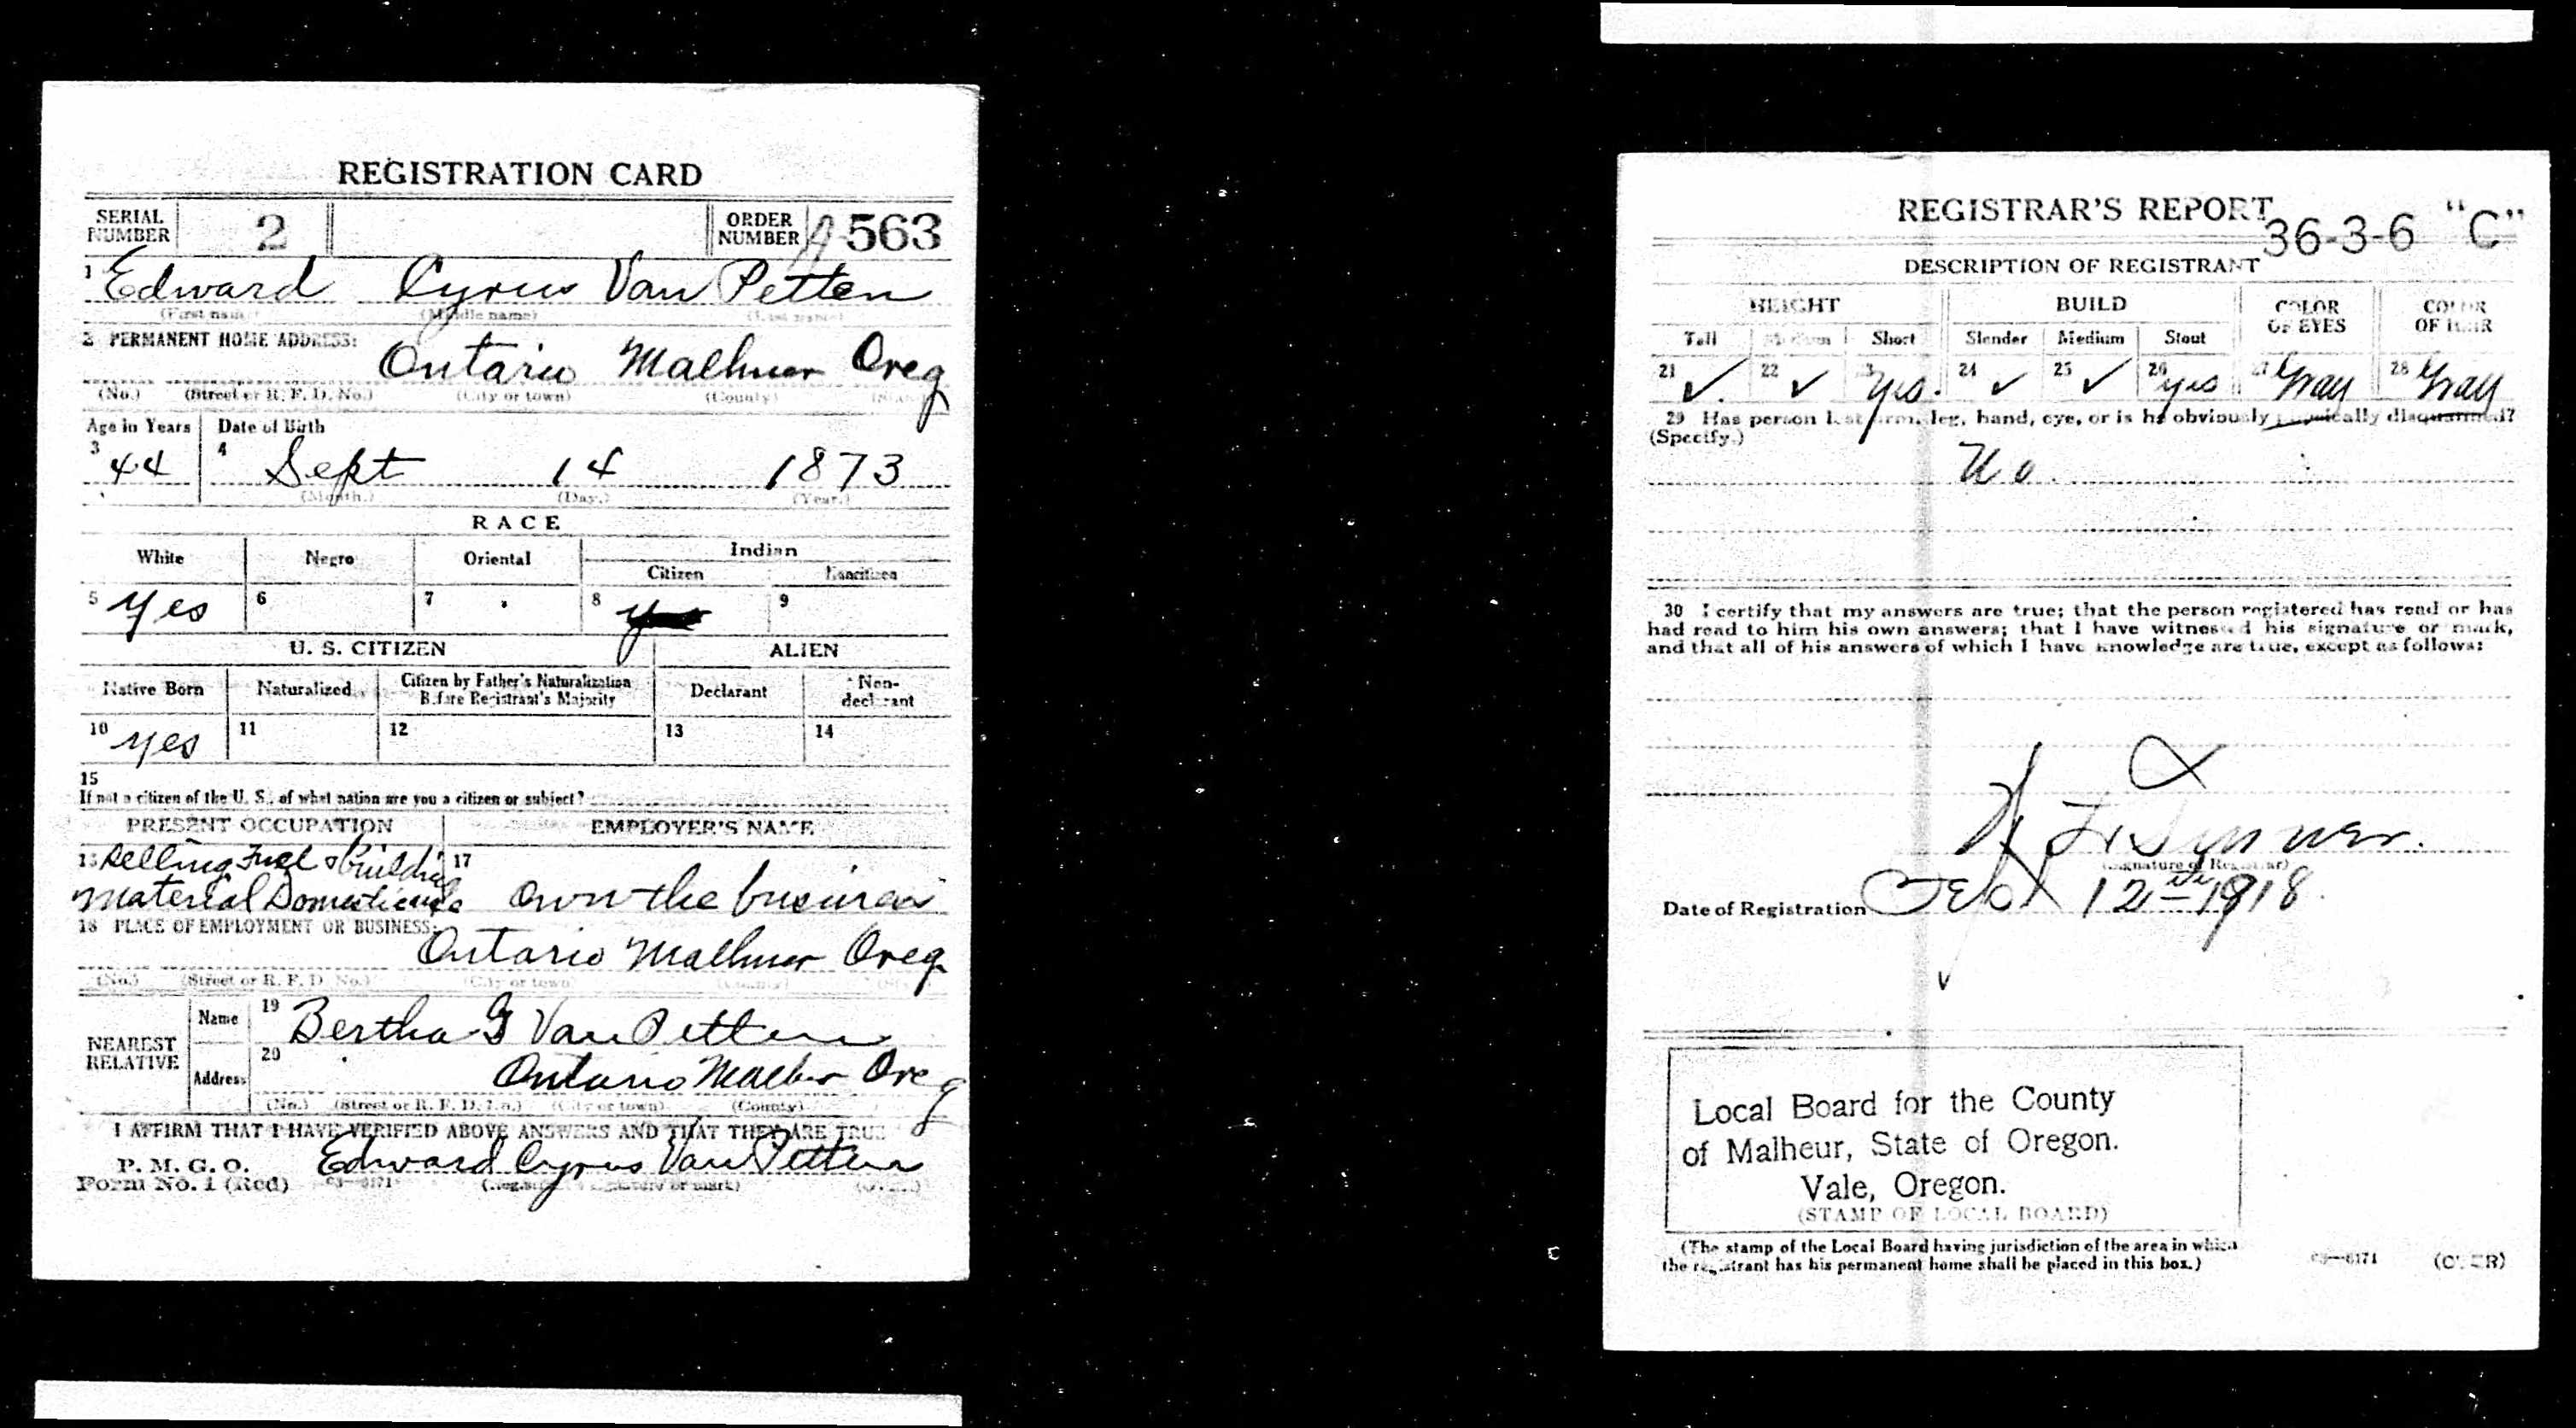 REGISTRATION CARD
SERIAL NUMBER 2 ORDER NUMBER A 563
1 Edward Cyrus Van Petten
(First name) (Middle name) (Last name)
2 PERMANENT HOME ADDRESS:
Ontario Malheur Oreg
(No.) (Street or R. F. D. No.) (City or town) (County) (State)
Age in Years Date of Birth
3 44 4 Sept 14 1873
(Month.) (Day.) (Year.)
RACE
White Negro Oriental Indian
Citizen Noncitizen
5 Yes 6 7 8 yes 9
U. S. CITIZEN ALIEN
Native Born Naturalized Citizen by Father's Naturalization Before Registrant's Majority Declarant Non-declarant
10 Yes 11 12 13 14
15
If not a citizen of the U. S., of what nation are you a citizen or subject?
PRESENT OCCUPATION EMPLOYER'S NAME
16 Selling Fuel & Building 17
Material own the business
18 PLACE OF EMPLOYMENT OR BUSINESS:
Ontario Malheur Oreg
(No.) (Street or R. F. D. No.) (City or town) (County) (State)
NEAREST RELATIVE
Name 19 Bertha G Van Petten
Address 20 Ontario Malheur Oreg
(No.) (Street or R. F. D. No.) (City or town) (County)
I AFFIRM THAT I HAVE VERIFIED ABOVE ANSWERS AND THAT THEY ARE TRUE
P. M. G. O.
Form No. 1 (Red) 03—6171 Edward Cyrus Van Petten
(Registrant's signature or mark) (OVER)
REGISTRAR'S REPORT
36-3-6 "C"
DESCRIPTION OF REGISTRANT
HEIGHT BUILD COLOR OF EYES COLOR OF HAIR
Tall Medium Short Slender Medium Stout
21 ✓ 22 ✓ 23 yes. 24 ✓ 25 ✓ 26 yes 27 Gray 28 Gray
29 Has person lost arm, leg, hand, eye, or is he obviously physically disqualified?
(Specify.)
No.
30 I certify that my answers are true; that the person registered has read or has
had read to him his own answers; that I have witnessed his signature or mark,
and that all of his answers of which I have knowledge are true, except as follows:
(Signature of Registrar)
Date of Registration 12th 1918.
Local Board for the County
of Malheur, State of Oregon.
Vale, Oregon.
(STAMP OF LOCAL BOARD)
(The stamp of the Local Board having jurisdiction of the area in which
the registrant has his permanent home shall be placed in this box.)
03—6171 (OVER)